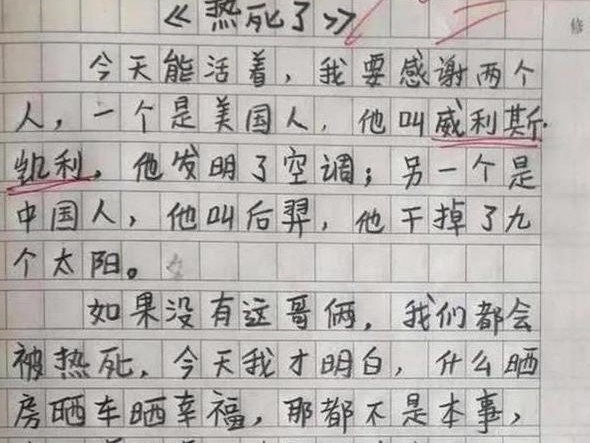 《热死了》
修
今天能活着，我要感谢两个
人，一个是美国人，他叫威利斯·
凯利，他发明了空调；另一个是
中国人，他叫后羿，他干掉了九
个太阳。
如果没有这哥俩，我们都会
被热死，今天我才明白，什么晒
房晒车晒幸福，那都不是本事，